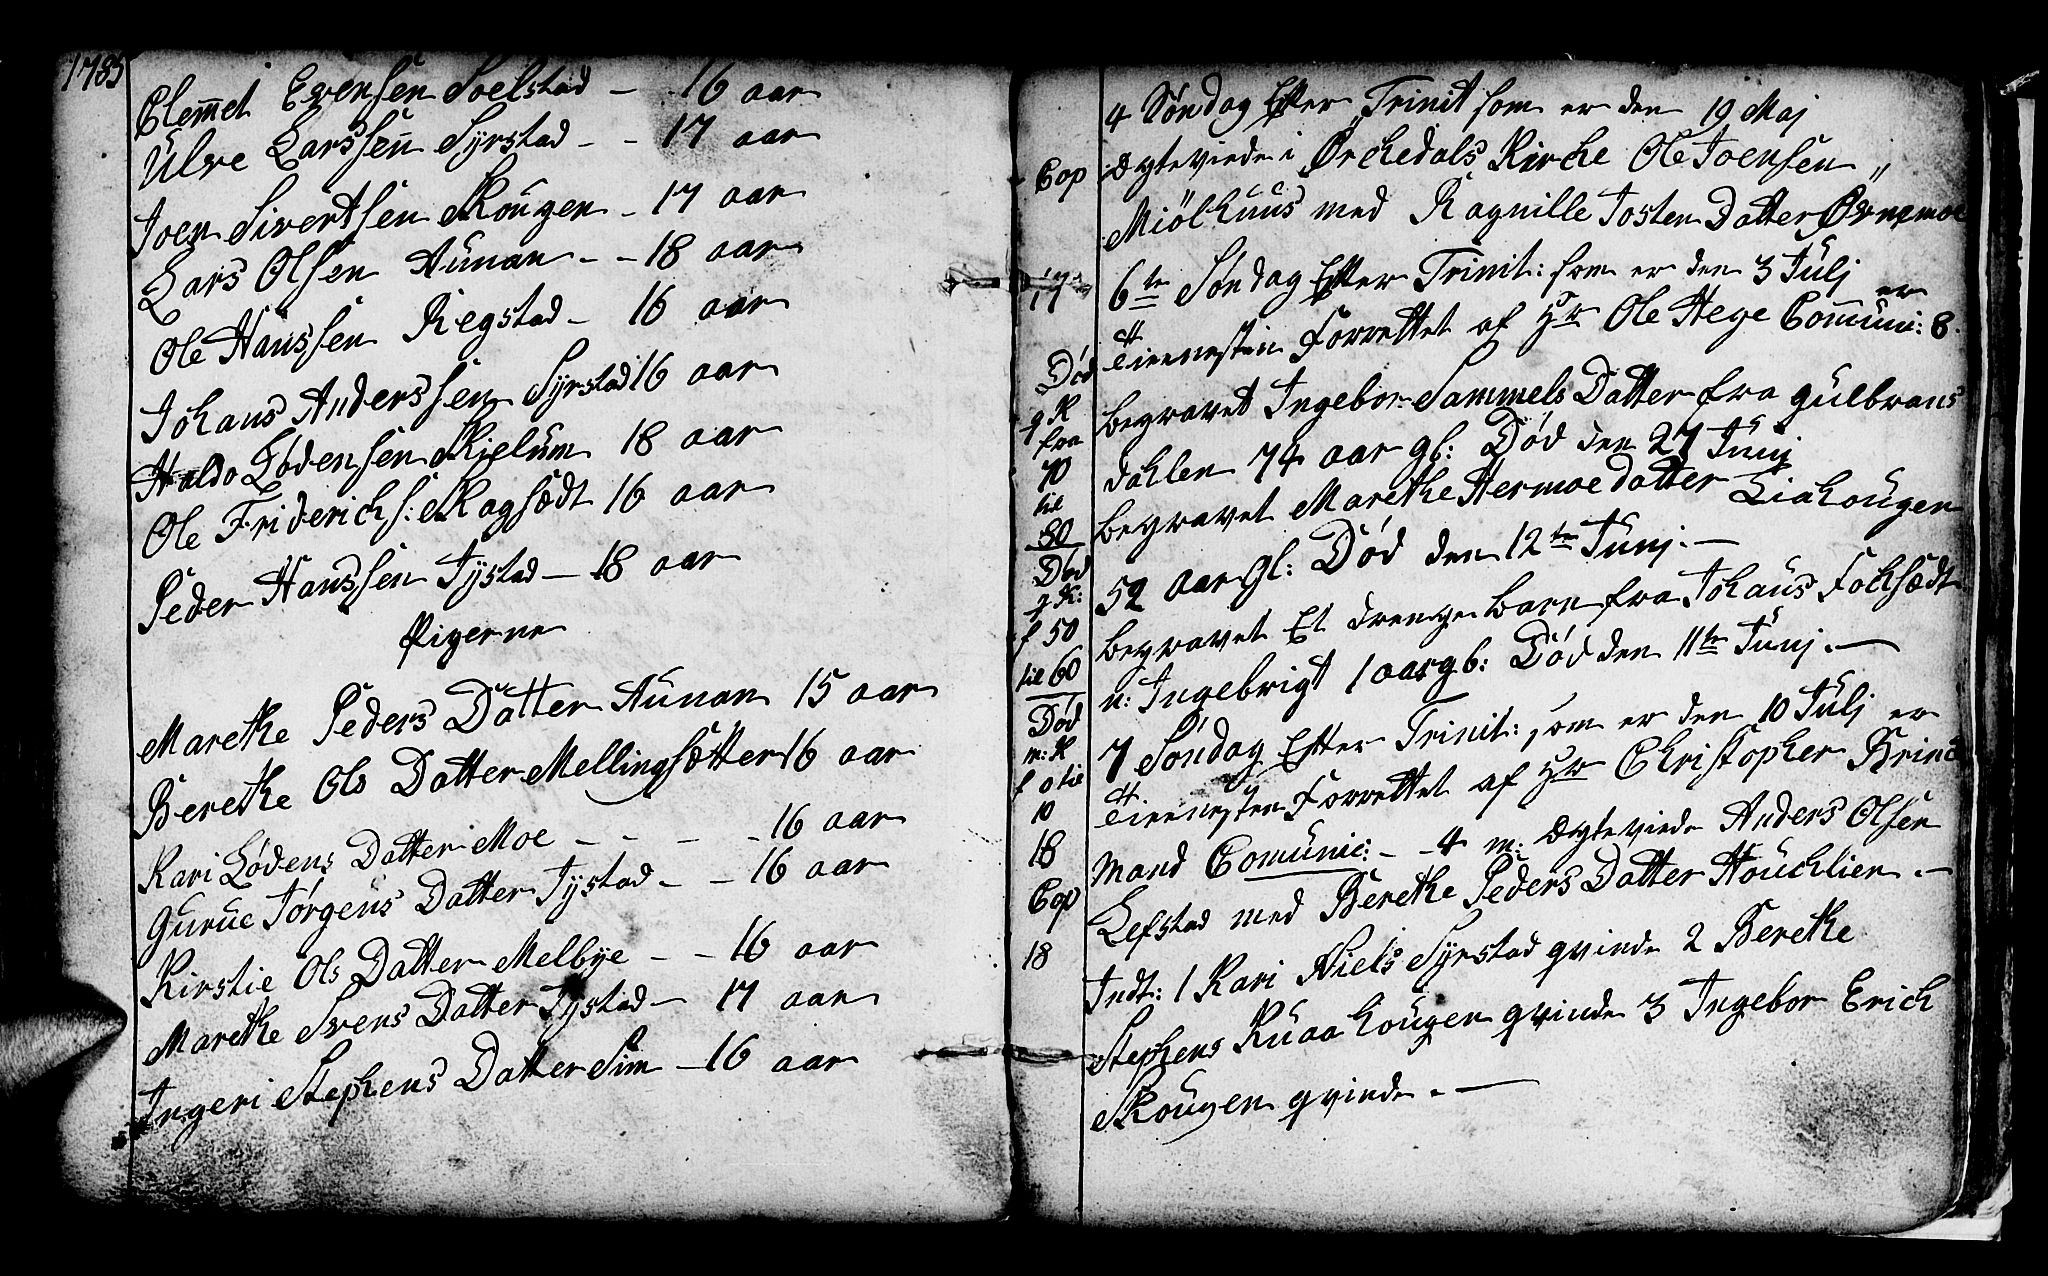 1785
Clem̅et Evensen Soelstad – 16 aar
Ulve Larssen̅ Syrstad – – 17 aar
Joen Sivertsen Skougen – 17 aar
Lars Olsen Aunan – – 18 aar
Ole Hanssen Regstad – 16 aar
Johans Anderssen Syrstad 16 aar
Haldo Lødensen Skielum 18 aar
Ole Friderichs: Ragsædt 16 aar
Peder Hanssen Jystad – 18 aar
Pigerne
Marethe Peders Datter Aunan 15 aar
Berethe Ols Datter Mellingsætter 16 aar
Kari Lødens Datter Moe – – – – 16 aar
Gurue Jørgens Datter Jystad – – 16 aar
Kirstie Ols Datter Melbye – – 16 aar
Marethe Svens Datter Jystad – 17 aar
Ingeri Stephens Datter Sim – 16 aar
4 Søndag Efter Trinit som er den 19 Maj
Cop ægteviede i Ørchedals Kirche Ole Joensen
Miølhuus med Ragnille Josten Datter Øvnemoe
17 6te Søndag Efter Trinit: som er den 3 Julj er
Tienesten Forrettet af Hr Ole Hege Com̅uni: 8.
Død
g K
fra
70
til
80
begravet Ingebor Sammels Datter fra gulbrans
dahlen 74 aar gl: Død den 27 Junj
begravet Marethe Hermoe datter Liahougen
Død
g K:
f 50
til 60
52 aar gl: Død den 12te Junj. –
begravet Et drenge barn fra Johans Fochsædt
n: Ingebrigt 1 aar gb: Død den 11te Junj. –
Død
m: K
f 0 til
10
18
7 Søndag Efter Trinit: som er den 10 Julj er
Tienesten Forrettet af Hr Christopher Brinc
mand Comunic: – – 4 m: ægteviede Anders Olsen
Cop Lefstad med Berethe Peders Datter Houchlien. –
18 Indt: 1 Kari Niels Syrstad qvinde 2 Berethe
Stephens Ruaahougen qvinde 3 Ingebor Erich
Skougen qvinde. –